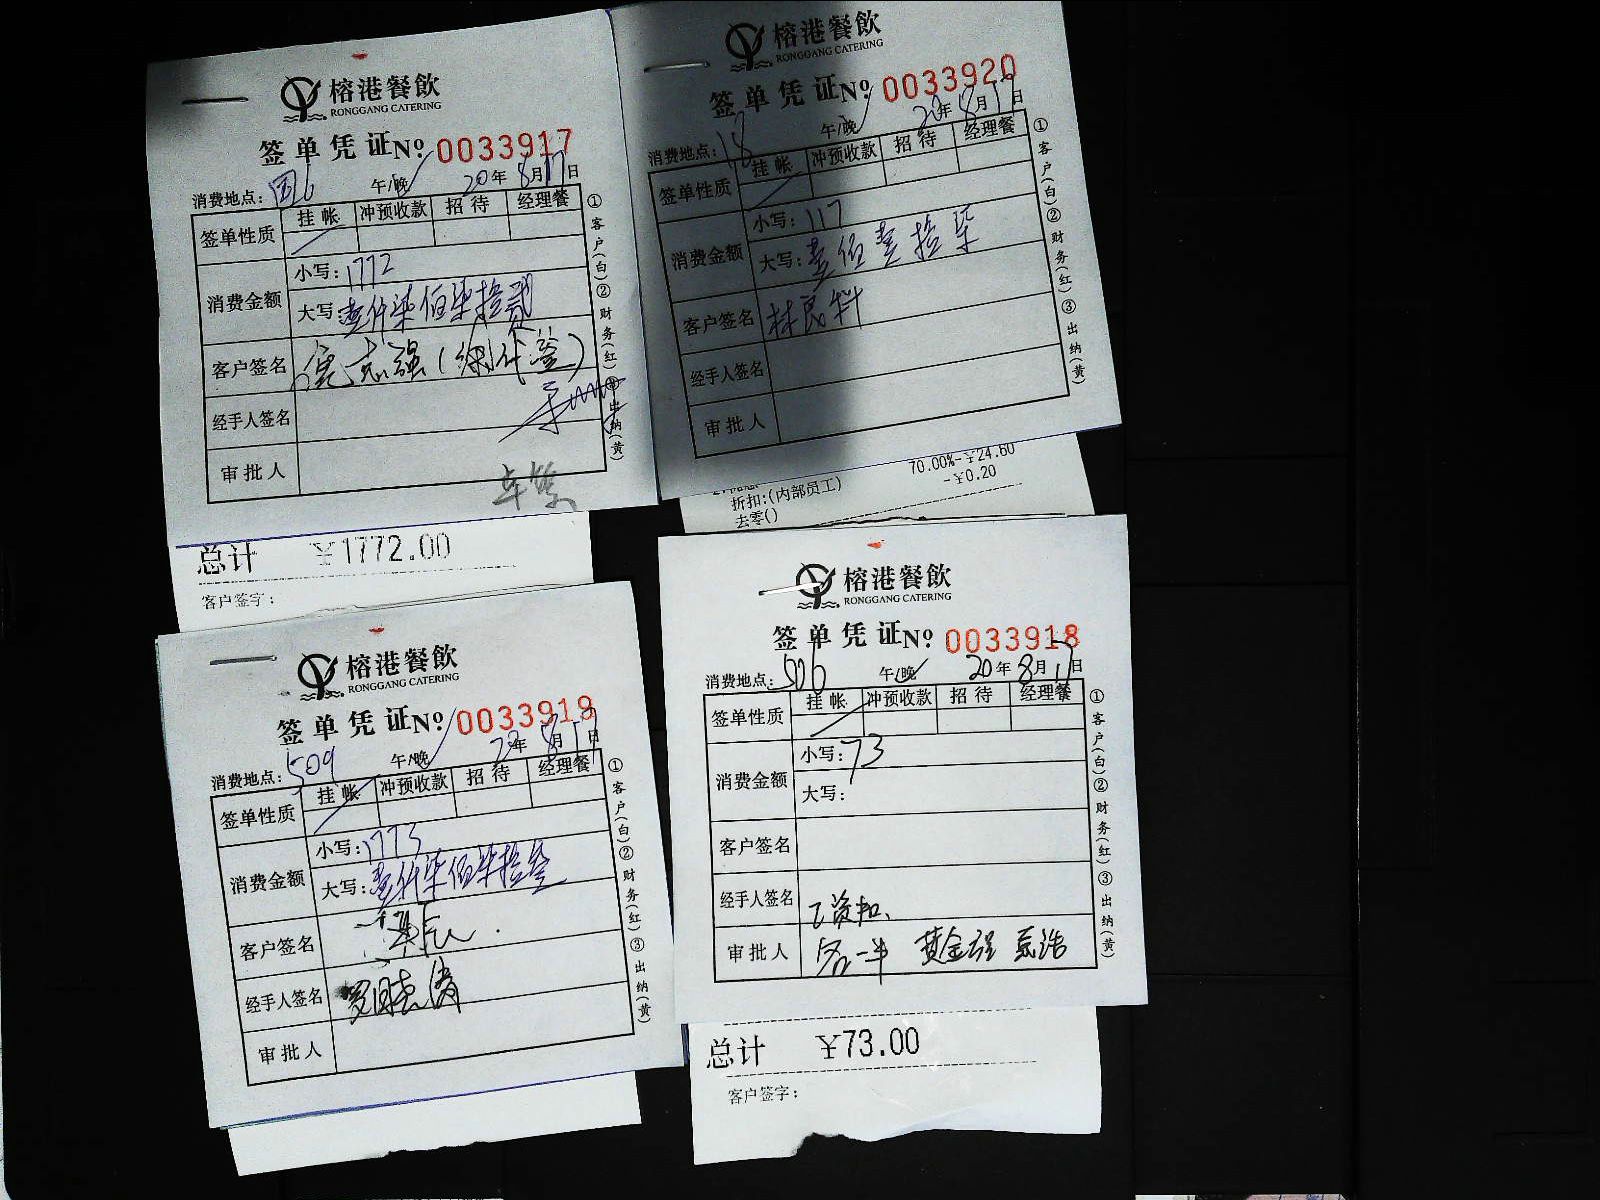 榕港餐飲
RONGGANG CATERING
签单凭证 Nº 0033917
消费地点: 国6 午/晚 20年8月17日
签单性质 挂帐 冲预收款 招待 经理餐
消费金额 小写: 1772
大写: 壹仟柒佰柒拾贰
客户签名 志强(代签)
经手人签名
审批人
①客户(白)②财务(红)③出纳(黄)
总计 ¥1772.00
客户签字:
榕港餐飲
RONGGANG CATERING
签单凭证 Nº 0033920
消费地点: 18 午/晚 20年8月17日
签单性质 挂帐 冲预收款 招待 经理餐
消费金额 小写: 117
大写: 壹佰壹拾柒
客户签名 林民科
经手人签名
审批人
①客户(白)②财务(红)③出纳(黄)
70.00%-¥24.60
折扣:(内部员工) -¥0.20
去零()
榕港餐飲
RONGGANG CATERING
签单凭证 Nº 0033919
消费地点: 509 午/晚 20年8月17日
签单性质 挂帐 冲预收款 招待 经理餐
消费金额 小写: 1773
大写: 壹仟柒佰柒拾叁
客户签名
经手人签名
审批人
①客户(白)②财务(红)③出纳(黄)
榕港餐飲
RONGGANG CATERING
签单凭证 Nº 0033918
消费地点: 506 午/晚 20年8月17日
签单性质 挂帐 冲预收款 招待 经理餐
消费金额 小写: 73
大写:
客户签名
经手人签名 工资扣、
审批人 各一半 黄金程
①客户(白)②财务(红)③出纳(黄)
总计 ¥73.00
客户签字: